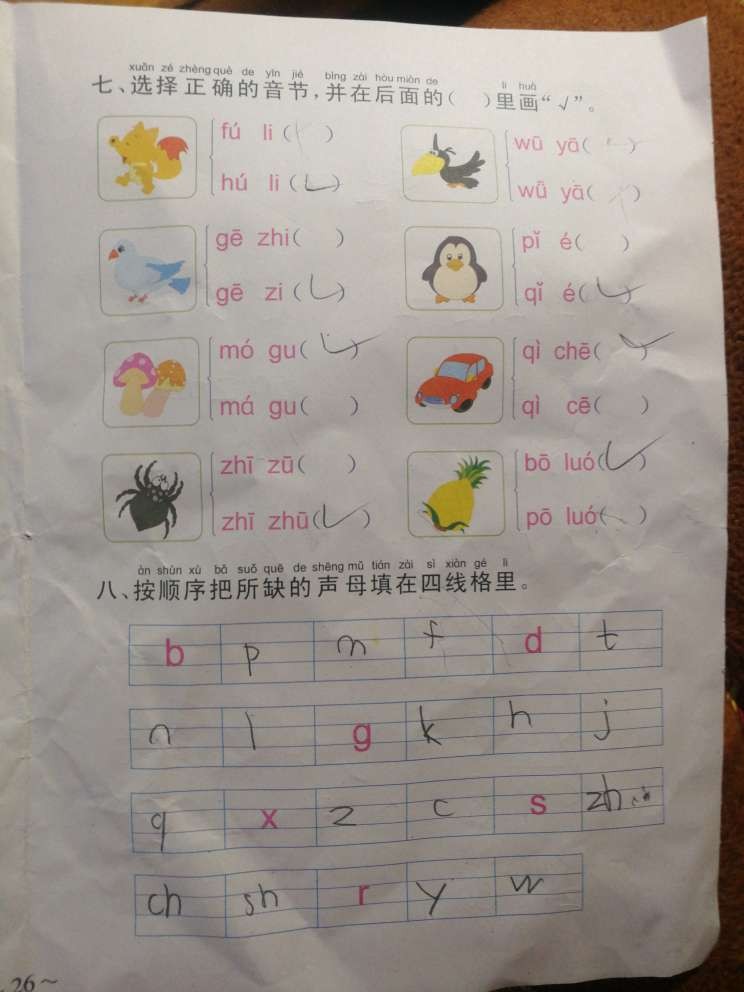 xuǎn zé zhèng què de yīn jié bìng zài hòu miàn de lǐ huà
七、选择正确的音节,并在后面的( )里画“√”。
fú li ( ) wū yā( )
hú li (√) wǖ yā( )
gē zhi( ) pǐ é( )
gē zi (√) qǐ é(√)
mó gu(√) qì chē(√)
má gu( ) qì cē( )
zhī zū( ) bō luó(√)
zhī zhū(√) pō luó( )
àn shùn xù bǎ suǒ quē de shēng mǔ tián zài sì xiàn gé lǐ
八、按顺序把所缺的声母填在四线格里。
b p m f d t
n l g k h j
q x z c s zh
ch sh r y w
26~